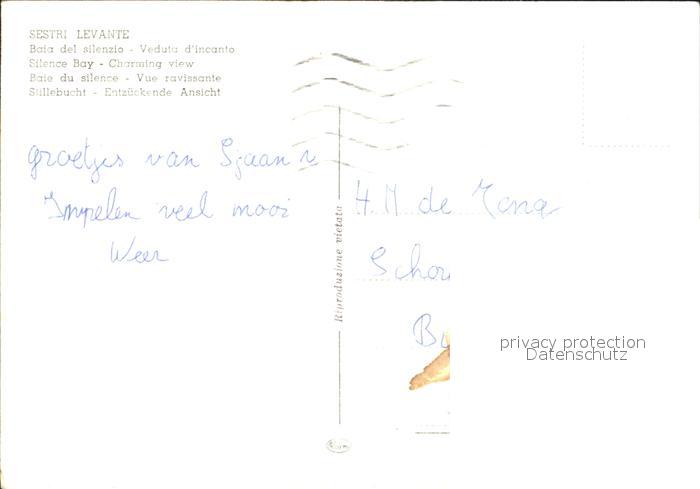 SESTRI LEVANTE
Baia del silenzio - Veduta d'incanto
Silence Bay - Charming view
Baie du silence - Vue ravissante
Stillebucht - Entzückende Ansicht
groetjes van Sjaan
veel mooi
Weer
Riproduzione vietata
H. M de
Schou
privacy protection
Datenschutz